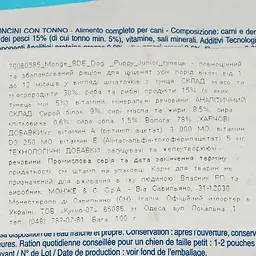 ONCINI CON TONNO - Alimento completo per cani - Composizione: carni e deri
dei pesci 15% (di cui tonno min. 5%), vitamine, sali minerali. Additivi Tecnologi
70080585_Monge_BDE_Dog _Puppy/Junior_тунець - повноцінний
та збалансований раціон для цуценят усіх порід віком від 1
до 12 місяців у вигляді шматочків з тунця. СКЛАД: м'ясо та
м'ясопродукти 30%, риба та рибні продукти 15% (з яких
тунець мін 5%), вітаміни, мінеральні речовини. АНАЛІТИЧНИЙ
СКЛАД: Сирий білок 9%, сирі масла та жири: 8.5%, сира
клітковина: 0.6%, сира зола: 1.5%, Волога: 78%. ХАРЧОВІ
ДОБАВКИ/кг: вітамін А (ретиніл ацетат) 3 000 МО, вітамін
D3 260 МО, вітамін Е (Альфа-альфа-токоферилацетат) 5 мг.
ТЕХНОЛОГІЧНІ ДОБАВКИ: загущувачі та желеутворюючі
речовини. Промислова серія та дата закінчення терміну
придатності: см штамп на упаковці. Корм для тварин не
призначений для вживання в їжу людиною. Власник РП та
виробник: МОНЖЕ & С. СпА - Віа Савільяно, 31-12030
Монастероло ді Савільяно (CN) Італія. Офіційний імпортер в
Україні: ТОВ «Кумо-07», 65085, м Одеса вул. Локальна, 1
тел. (048) 787-07-81. Вага: 100 г.
ta su dispositivo d'apertura. Conservation: après ouverture, conse
ures. Ration quotidienne conseillée pour un chien de taille petit: 1-2 pouches
avant / N° de Lot / Date d'emballage: voir au fond de l'emballage.